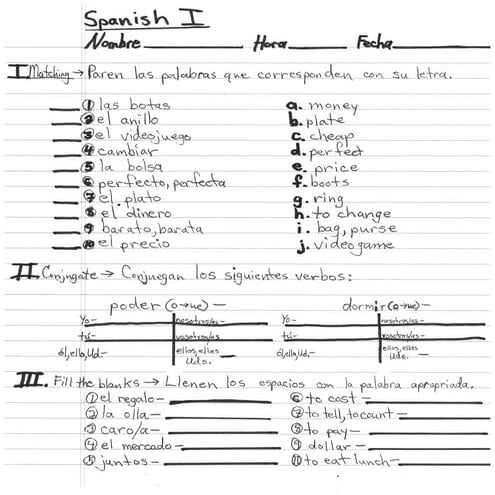 Spanish I
Nombre Hora Fecha
I Matching → Paren las palabras que corresponden con su letra.
① las botas a. money
② el anillo b. plate
③ el videojuego c. cheap
④ cambiar d. perfect
⑤ la bolsa e. price
⑥ perfecto, perfecta f. boots
⑦ el plato g. ring
⑧ el dinero h. to change
⑨ barato, barata i. bag, purse
⑩ el precio j. videogame
II. Conjugate → Conjuegan los siguientes verbos:
poder (o→ue) — dormir (o→ue) —
Yo- nosotros/as- Yo- nosotros/as-
tú- vosotros/as- tú- vosotros/as-
él, ella, Ud.- ellos, ellas Uds. él, ella, Ud.- ellos, ellas Uds.
III. Fill the blanks → Llenen los espacios con la palabra apropriada.
① el regalo- ⑥ to cost-
② la olla- ⑦ to tell, to count-
③ caro/a- ⑧ to pay-
④ el mercado- ⑨ dollar-
⑤ juntos- ⑩ to eat lunch-